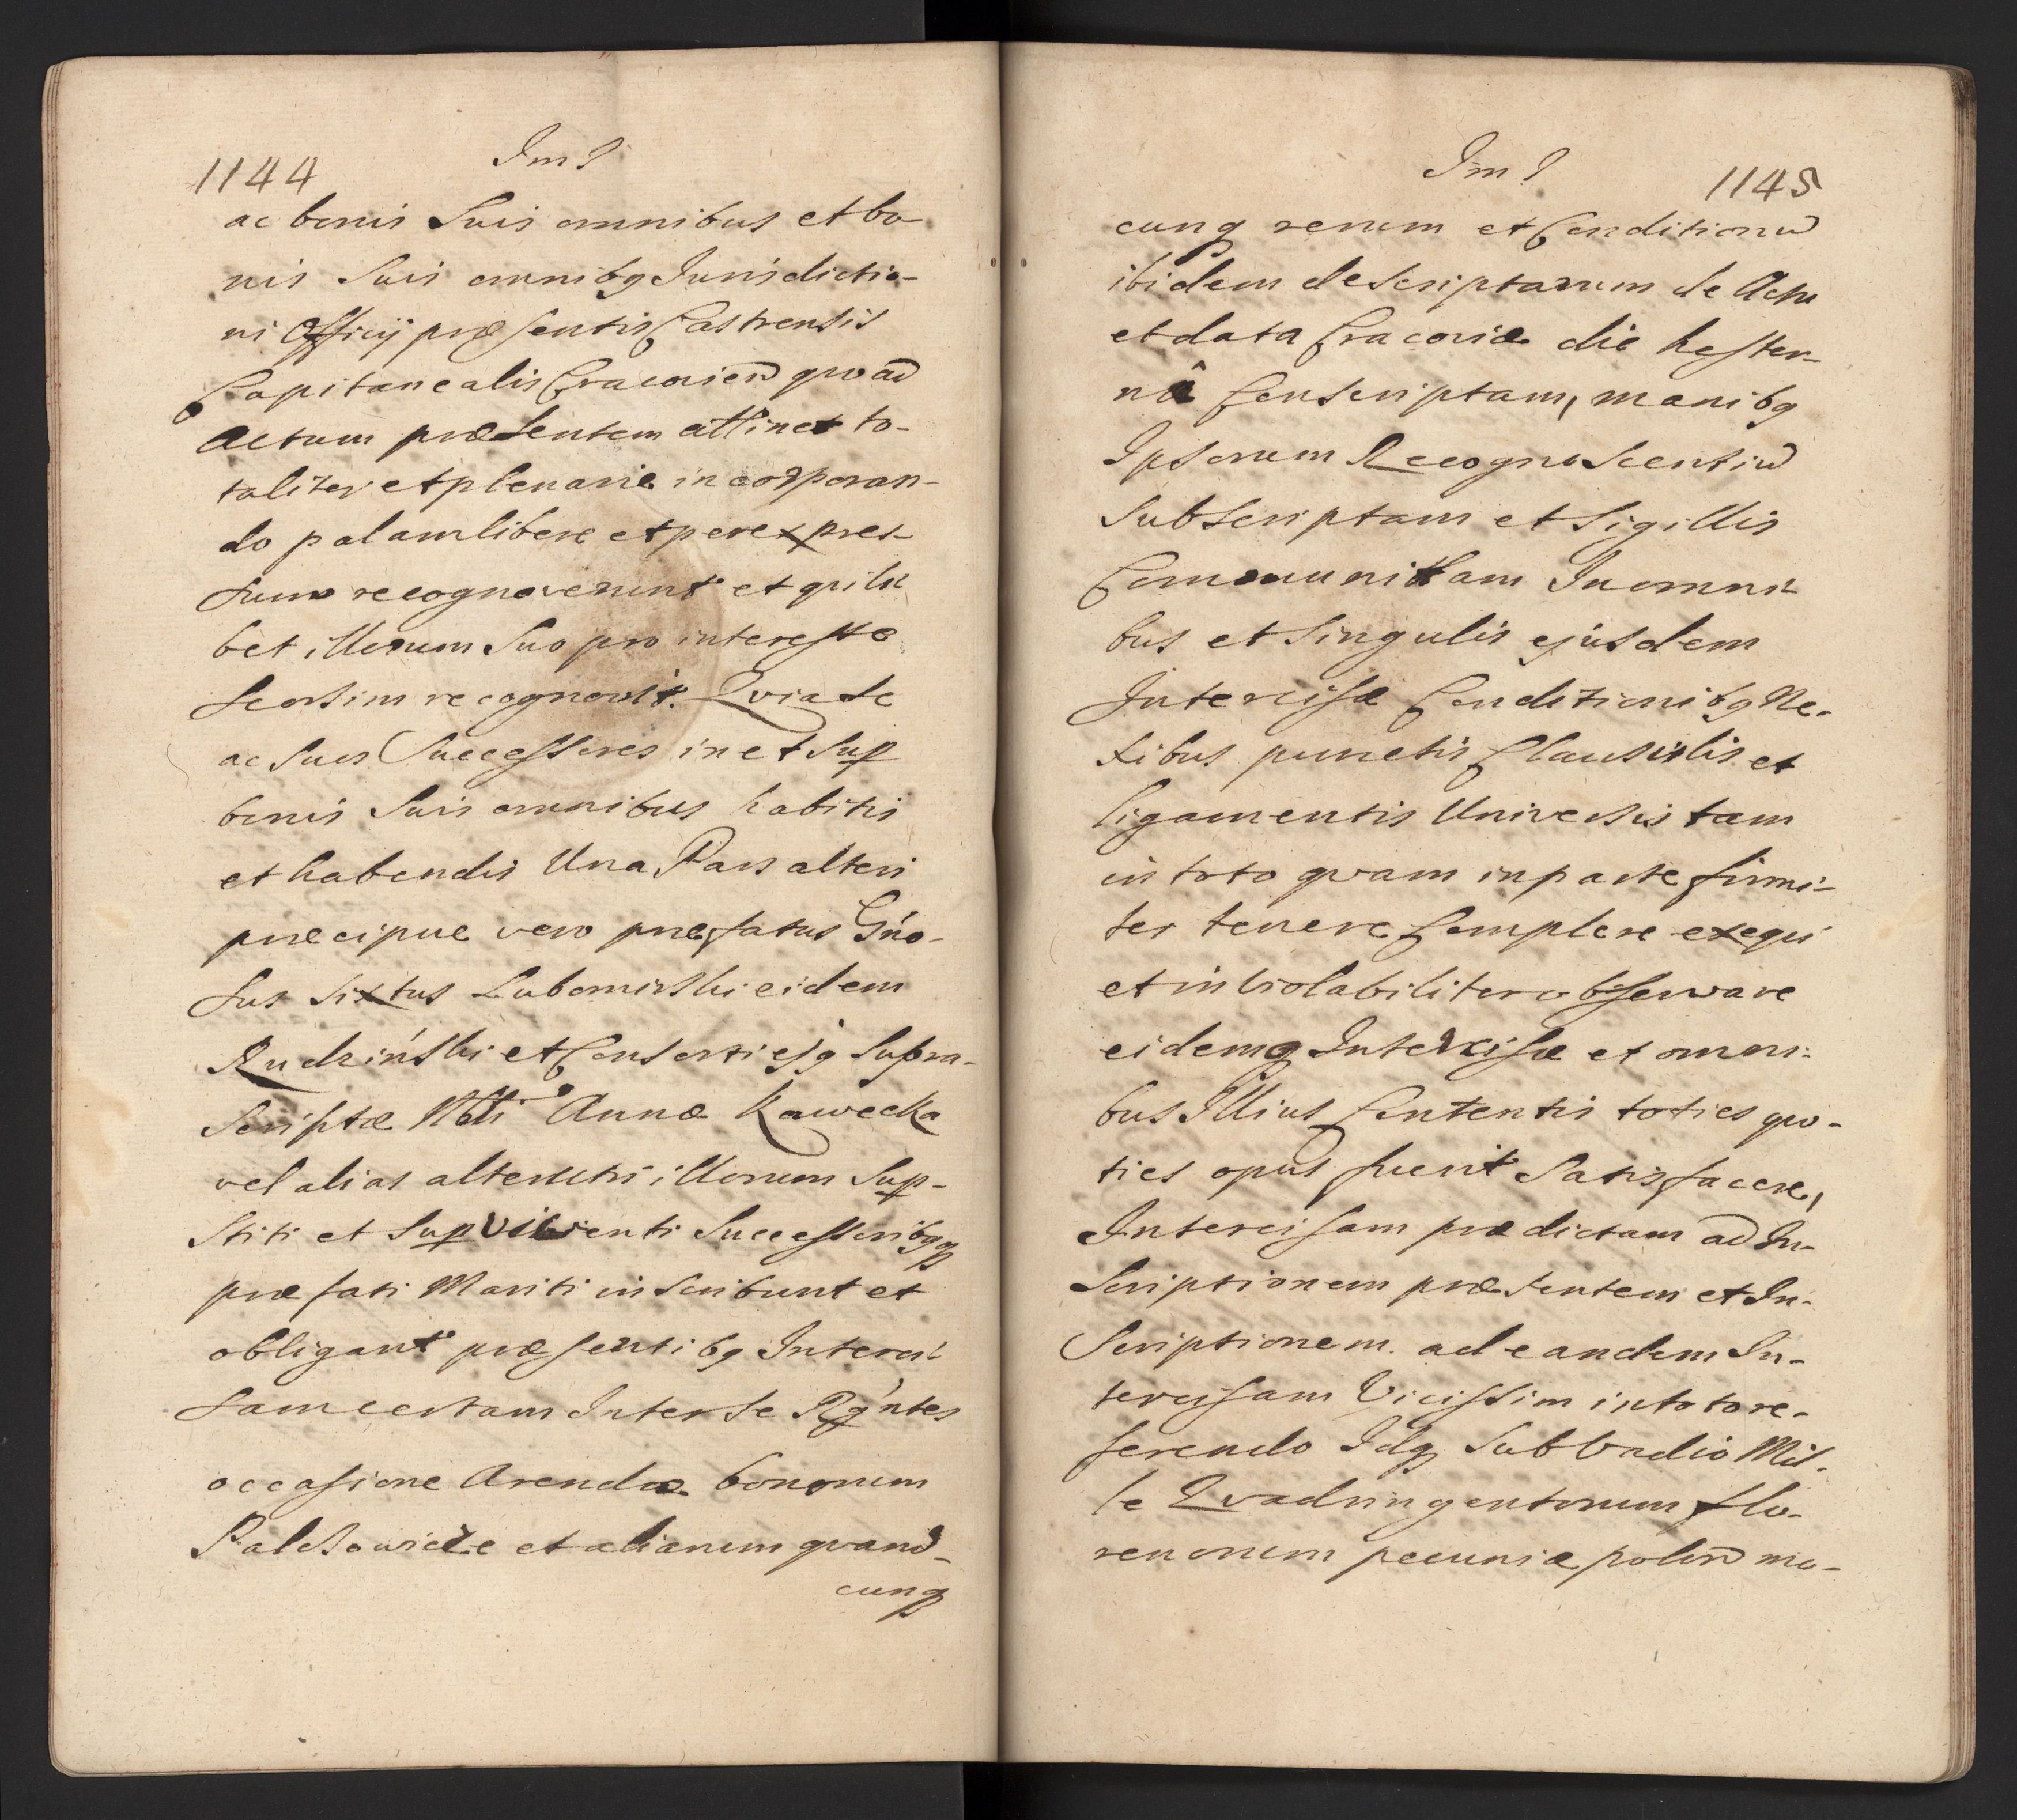 1144
ac bonis Suis omnibus et bo-
nis Suis omnibq Jurisdictio-
ni Officij præsentis Castrensis
Capitanealis Cracovien̄ qvoad
Actum præsentem attinet to-
taliter et plenarie incorporan-
do palam libere et per expres-
sum recognoverunt et quili
bet illorum Suo pro interesse
seorsim recognovit. Qvia se
ac Suos Successores in et Sup
bonis Suis omnibus habitis
et habendis Una Pars alteri
præcipue vero præfatus G'no-
sus Sixtus Lubomirski eidem
Rudziński et Consorti ejq Supra-
scriptæ Annæ Kawecka
vel alias alterutri illorum Sup-
stiti et Supviventi Successoribqq
præfati Mariti inscribunt et
obligant præsentibq Interci-
sam certam Inter se Rg'ntes
occasione Arendæ bonorum
et aliarum qvarū-
cunq
Im?
1145
cunq rerum et Conditionū
ibidem descriptarum de Actu
et data Cracoviæ die hester-
nâ Conscriptam, manibq
Ipsorum Recognoscentiū
Subscriptam et Sigillis
Communittam In omni-
bus et Singulis ejusdem
Intercisæ Conditionibq Ne-
xibus punctis Clausulis et
ligamentis Universis tam
in toto qvam in parte firmi-
ter tenere Complere exequi
et inviolabiliter observare
eidemq Intercisæ et omni-
bus Illius Contentis toties qvo-
ties opus fuerit Satisfacere,
Intercisam prædictam ad In-
scriptionem præsentem et In-
Scriptionem ad eandem In-
tercisam Vicissim in toto re-
ferendo Idq Sub Vadio Mil-
le Qvadringentorum flo-
renorum pecuniæ polon̄ mo-